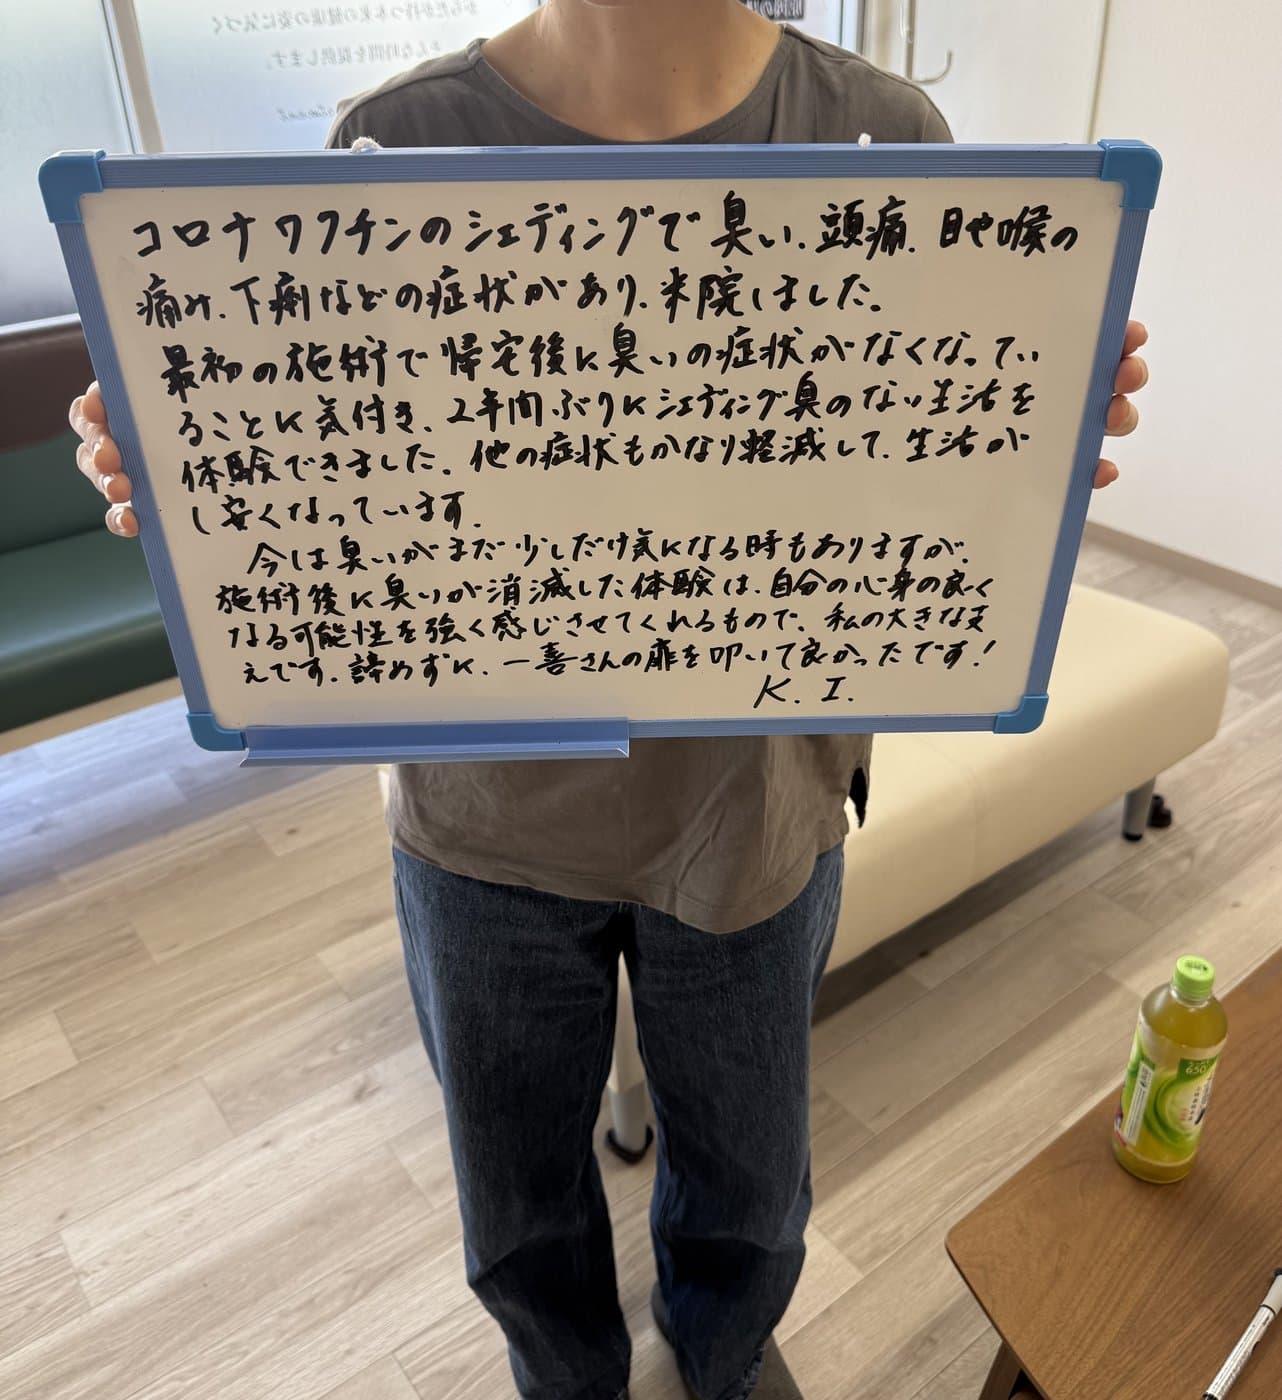 からだが持つ本来の健康の姿に気づく
そんな時間を提供します。
コロナワクチンのシェディングで臭い、頭痛、目や喉の
痛み、下痢などの症状があり、来院しました。
最初の施術で帰宅後に臭いの症状がなくなってい
ることに気付き、2年間ぶりにシェディング臭のない生活を
体験できました。他の症状もかなり軽減して、生活が
し安くなっています。
今は臭いがまだ少しだけ気になる時もありますが、
施術後に臭いが消滅した体験は、自分の心身の良く
なる可能性を強く感じさせてくれるもので、私の大きな支
えです。諦めずに、一善さんの扉を叩いて良かったです!
K. I.
650